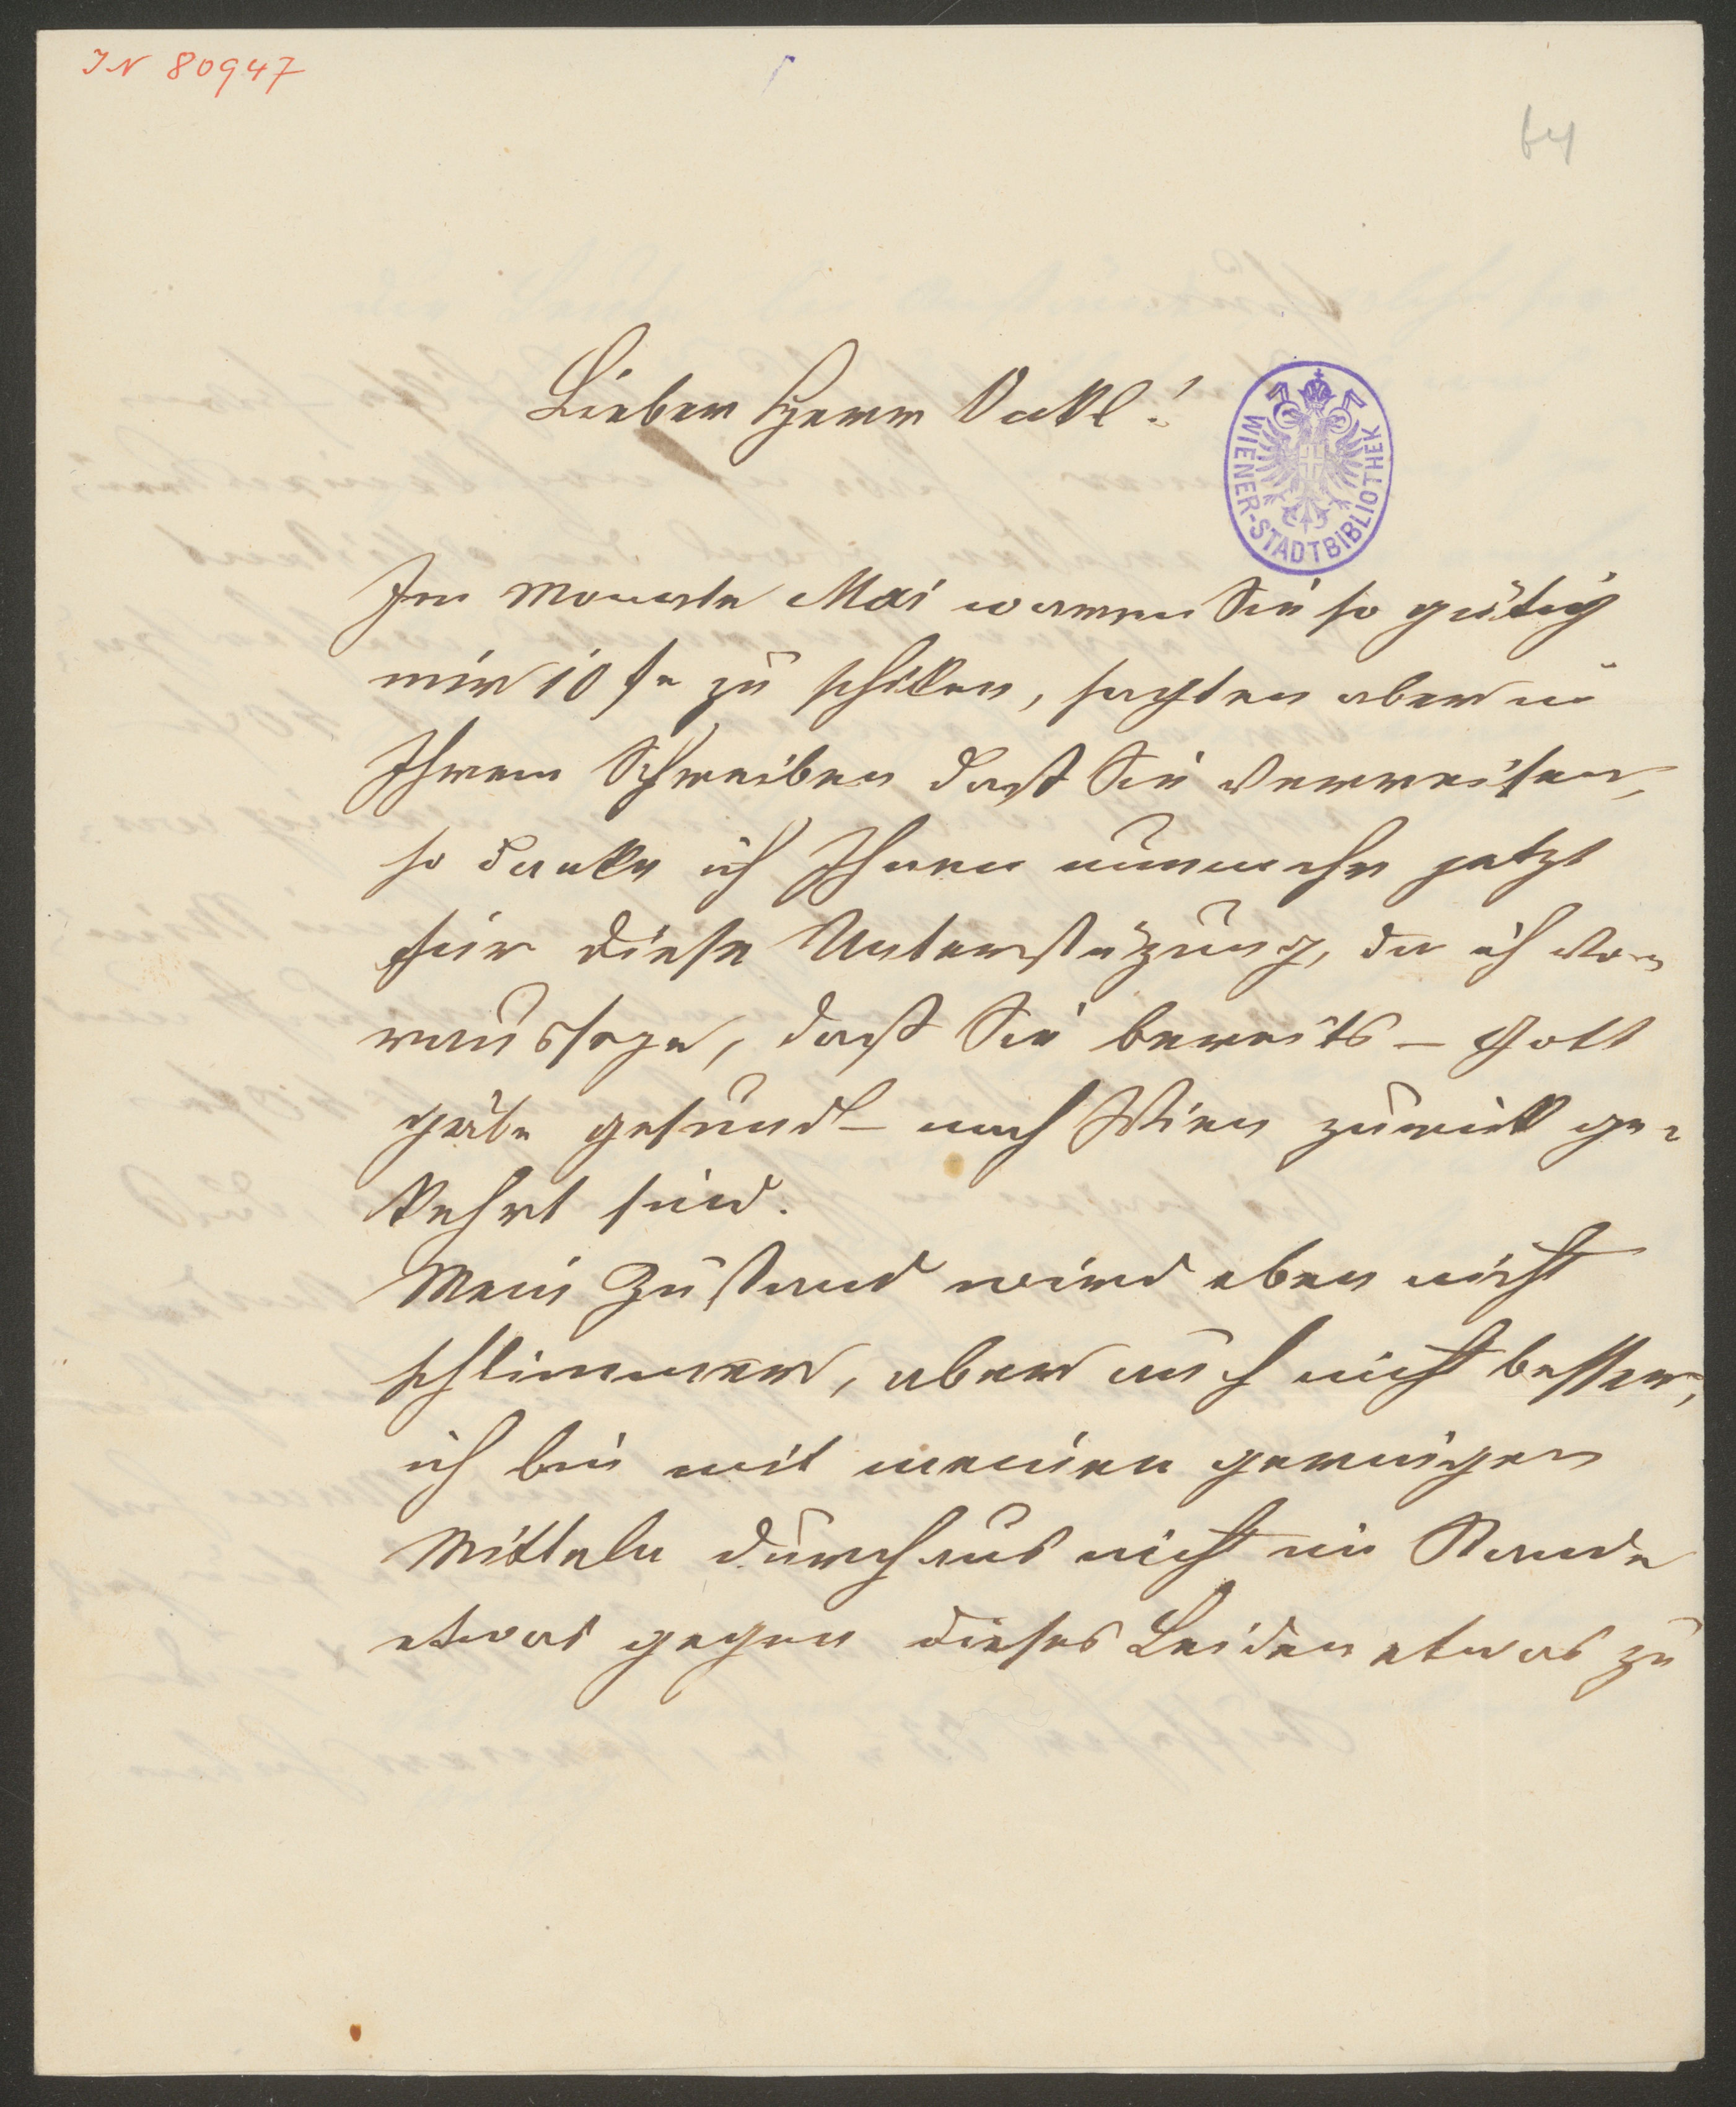 IN 80947
64
Lieber Herr Vakl!
WIENER-STADTBIBLIOTHEK
Im Monate Mai waren Sie so gütig
mir 10 f. zu schiken, sagten aber in
Ihrem Schreiben daß Sie verreisen,
so danke ich Ihnen nunmehr jetzt
für diese Unterstüzung, da ich vor-
raussetze, daß Sie bereits – Gott
gäbe gesund – nach Wien zurük ge-
kehrt sind.
Mein Zustand wird eben nicht
schlimmer, aber auch nicht besser,
ich bin mit meinen geringen
Mitteln durchaus nicht im Stande
etwas gegen dieses Leiden etwas zu